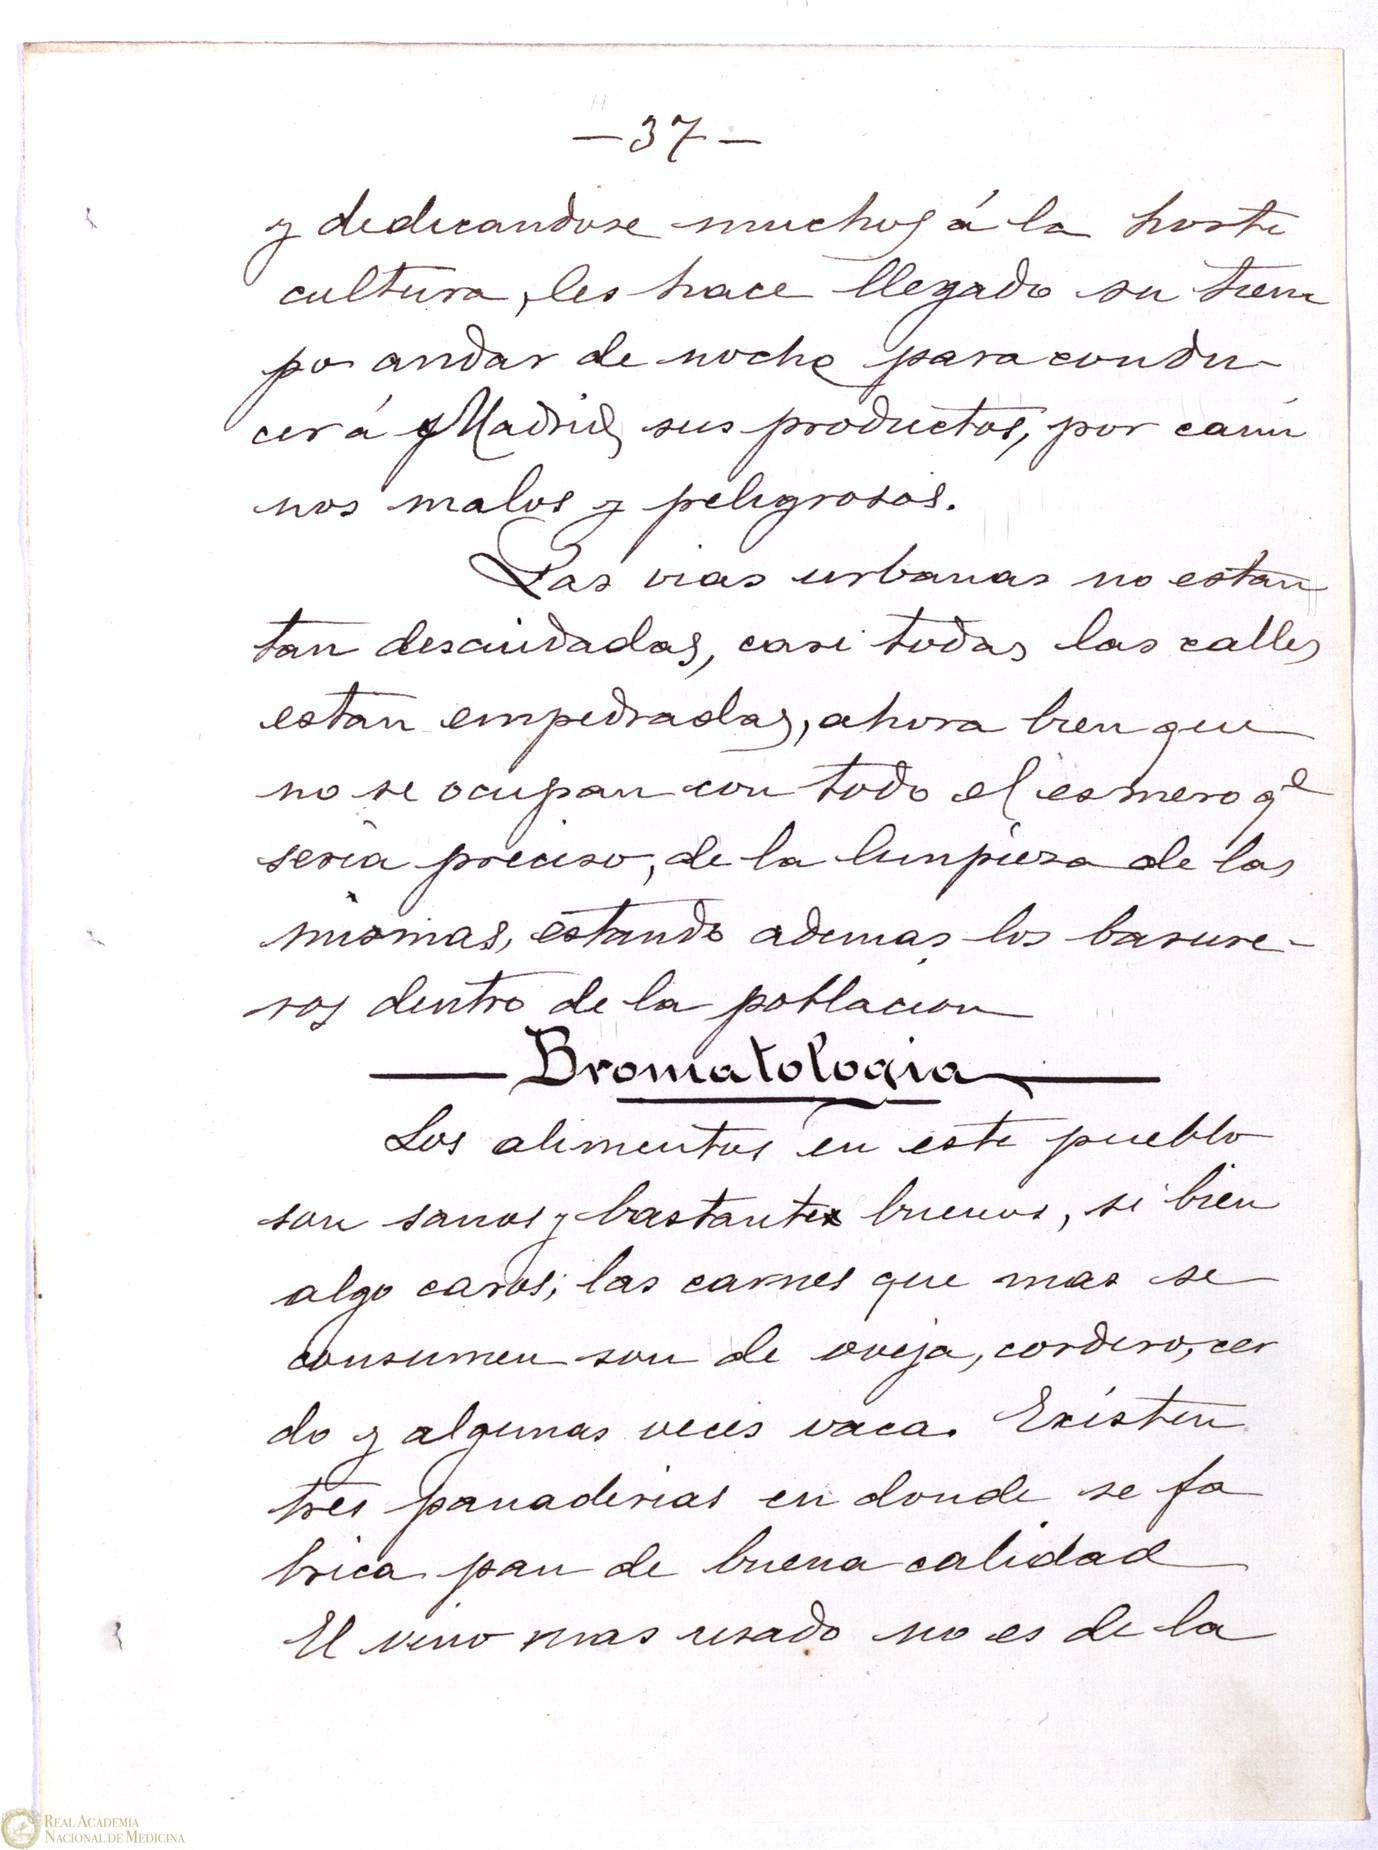 —37—
y dedicandose muchos á la horti
cultura, les hace llegado su tiem
po andar de noche para condu-
cer á Madrid sus productos, por cami
nos malos y peligrosos.
Las vias urbanas no estan
tan descuidadas, casi todas las calles
estan empedradas, ahora bien que
no se ocupan con todo el esmero qe
seria preciso, de la limpieza de las
mismas, estando ademas los basure-
ros dentro de la poblacion
Bromatologia
Los alimentos en este pueblo
son sanos y bastante buenos, si bien
algo caros; las carnes que mas se
consumen son de oveja, cordero, cer
do y algunas veces vaca. Existen
tres panaderias en donde se fa
brica pan de buena calidad
El vino mas usado no es de la
REAL ACADEMIA
NACIONAL DE MEDICINA